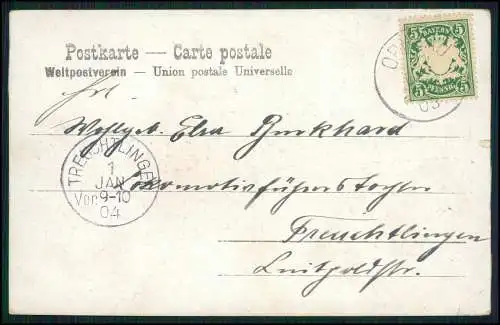 Postkarte — Carte postale
Weltpostverein — Union postale Universelle
BAYERN
5 5
5 PFENNIG 5
03
Frl.
Wohlgeb. Elsa Burkhard
Lokomotivführers Tochter
Treuchtlingen
Luitpoldstr.
TREUCHTLINGEN
1
JAN
Vor. 9-10
04